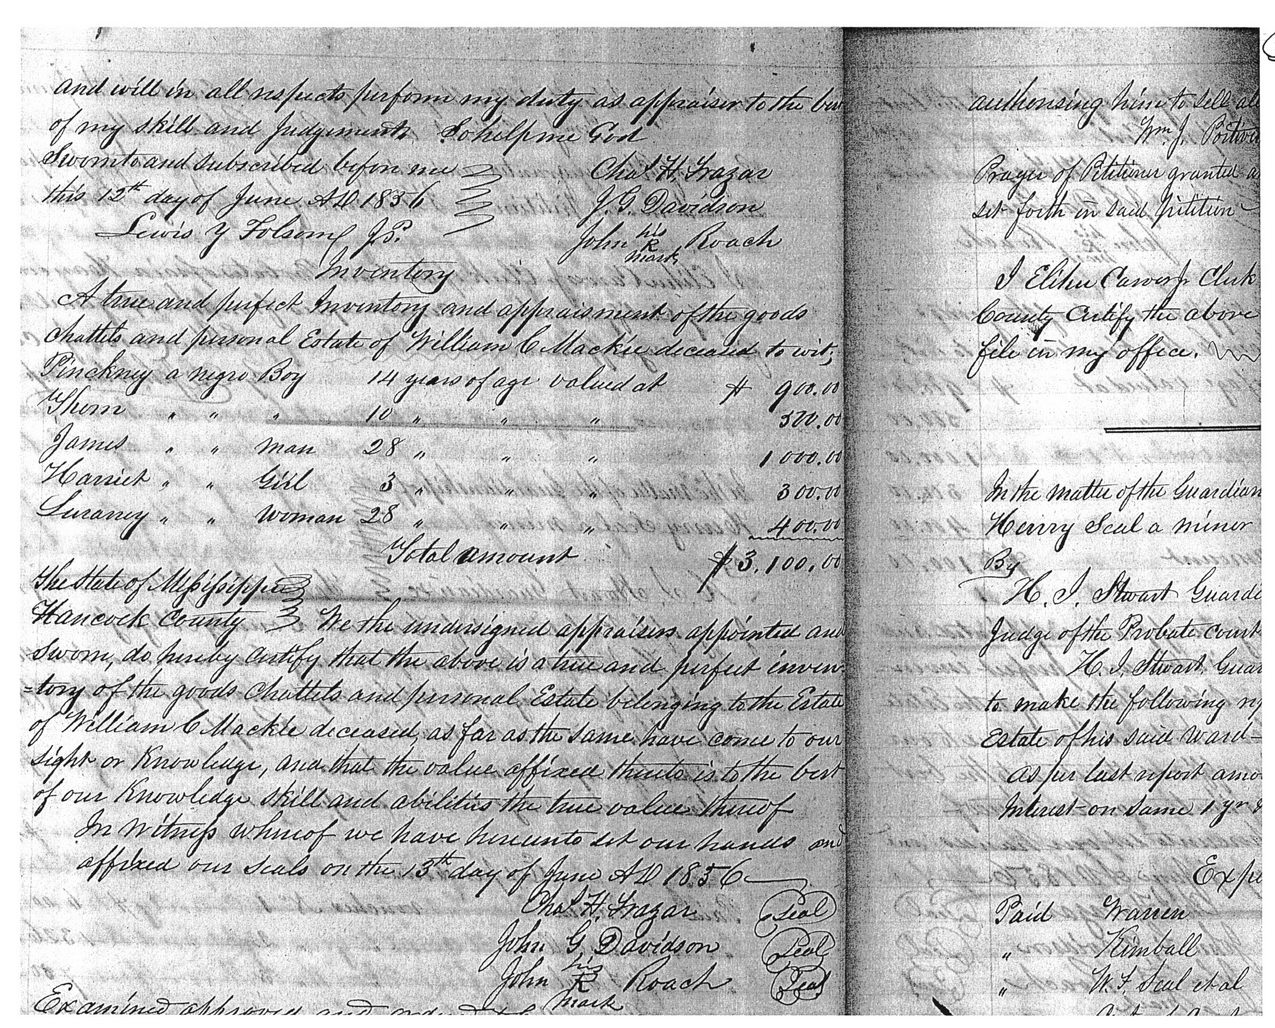 and will in all respects perform my duty as appraiser to the bes
of my skill and Judgement. So help me God
Sworn to and subscribed before me
this 12th day of June AD 1856
Chas H. Frazar
J. G. Davidson
Lewis Y Folsom J.P.
John his R mark Roach
Inventory
A true and perfect Inventory and appraisment of the goods
Chattels and personal Estate of William C Mackie deceased to wit;
Pinckney a negro Boy 14 years of age valued at $ 900.00
Thom " " " 10 " " " 500.00
James " " man 28 " " " 1000.00
Harriet " " Girl 3 " " " 300.00
Luraney " " woman 28 " " " 400.00
Total amount $3,100.00
The State of Mississippi
Hancock County We the undersigned appraisers appointed and
Sworn, do hereby certify that the above is a true and perfect inven-
=tory of the goods Chattels and personal Estate belonging to the Estate
of William C Mackie deceased, as far as the same have come to our
sight or Knowledge, and that the value affixed thereto is to the best
of our Knowledge skill and abilities the true value thereof
In Witness whereof we have hereunto set our hands and
affixed our seals on the 13th day of June AD 1856
Chas H. Frazar Seal
John G. Davidson Seal
John his R mark Roach Seal
Examined approved and
authorising him to sell
Wm J.
Prayer of Petitioner granted
set forth in said petition
I Elihu Carver Clerk
County Certify the above
file in my office.
In the matter of the Guardian
Henry Seal a minor
By
H. I. Stwart Guardi
Judge of the Probate Court
H. I. Stwart, Guar
to make the following
Estate of his said Ward-
As per last report amo
Interest on same 1 yr
Expe
Paid Warren
" Kimball
" W. F. Seal et al